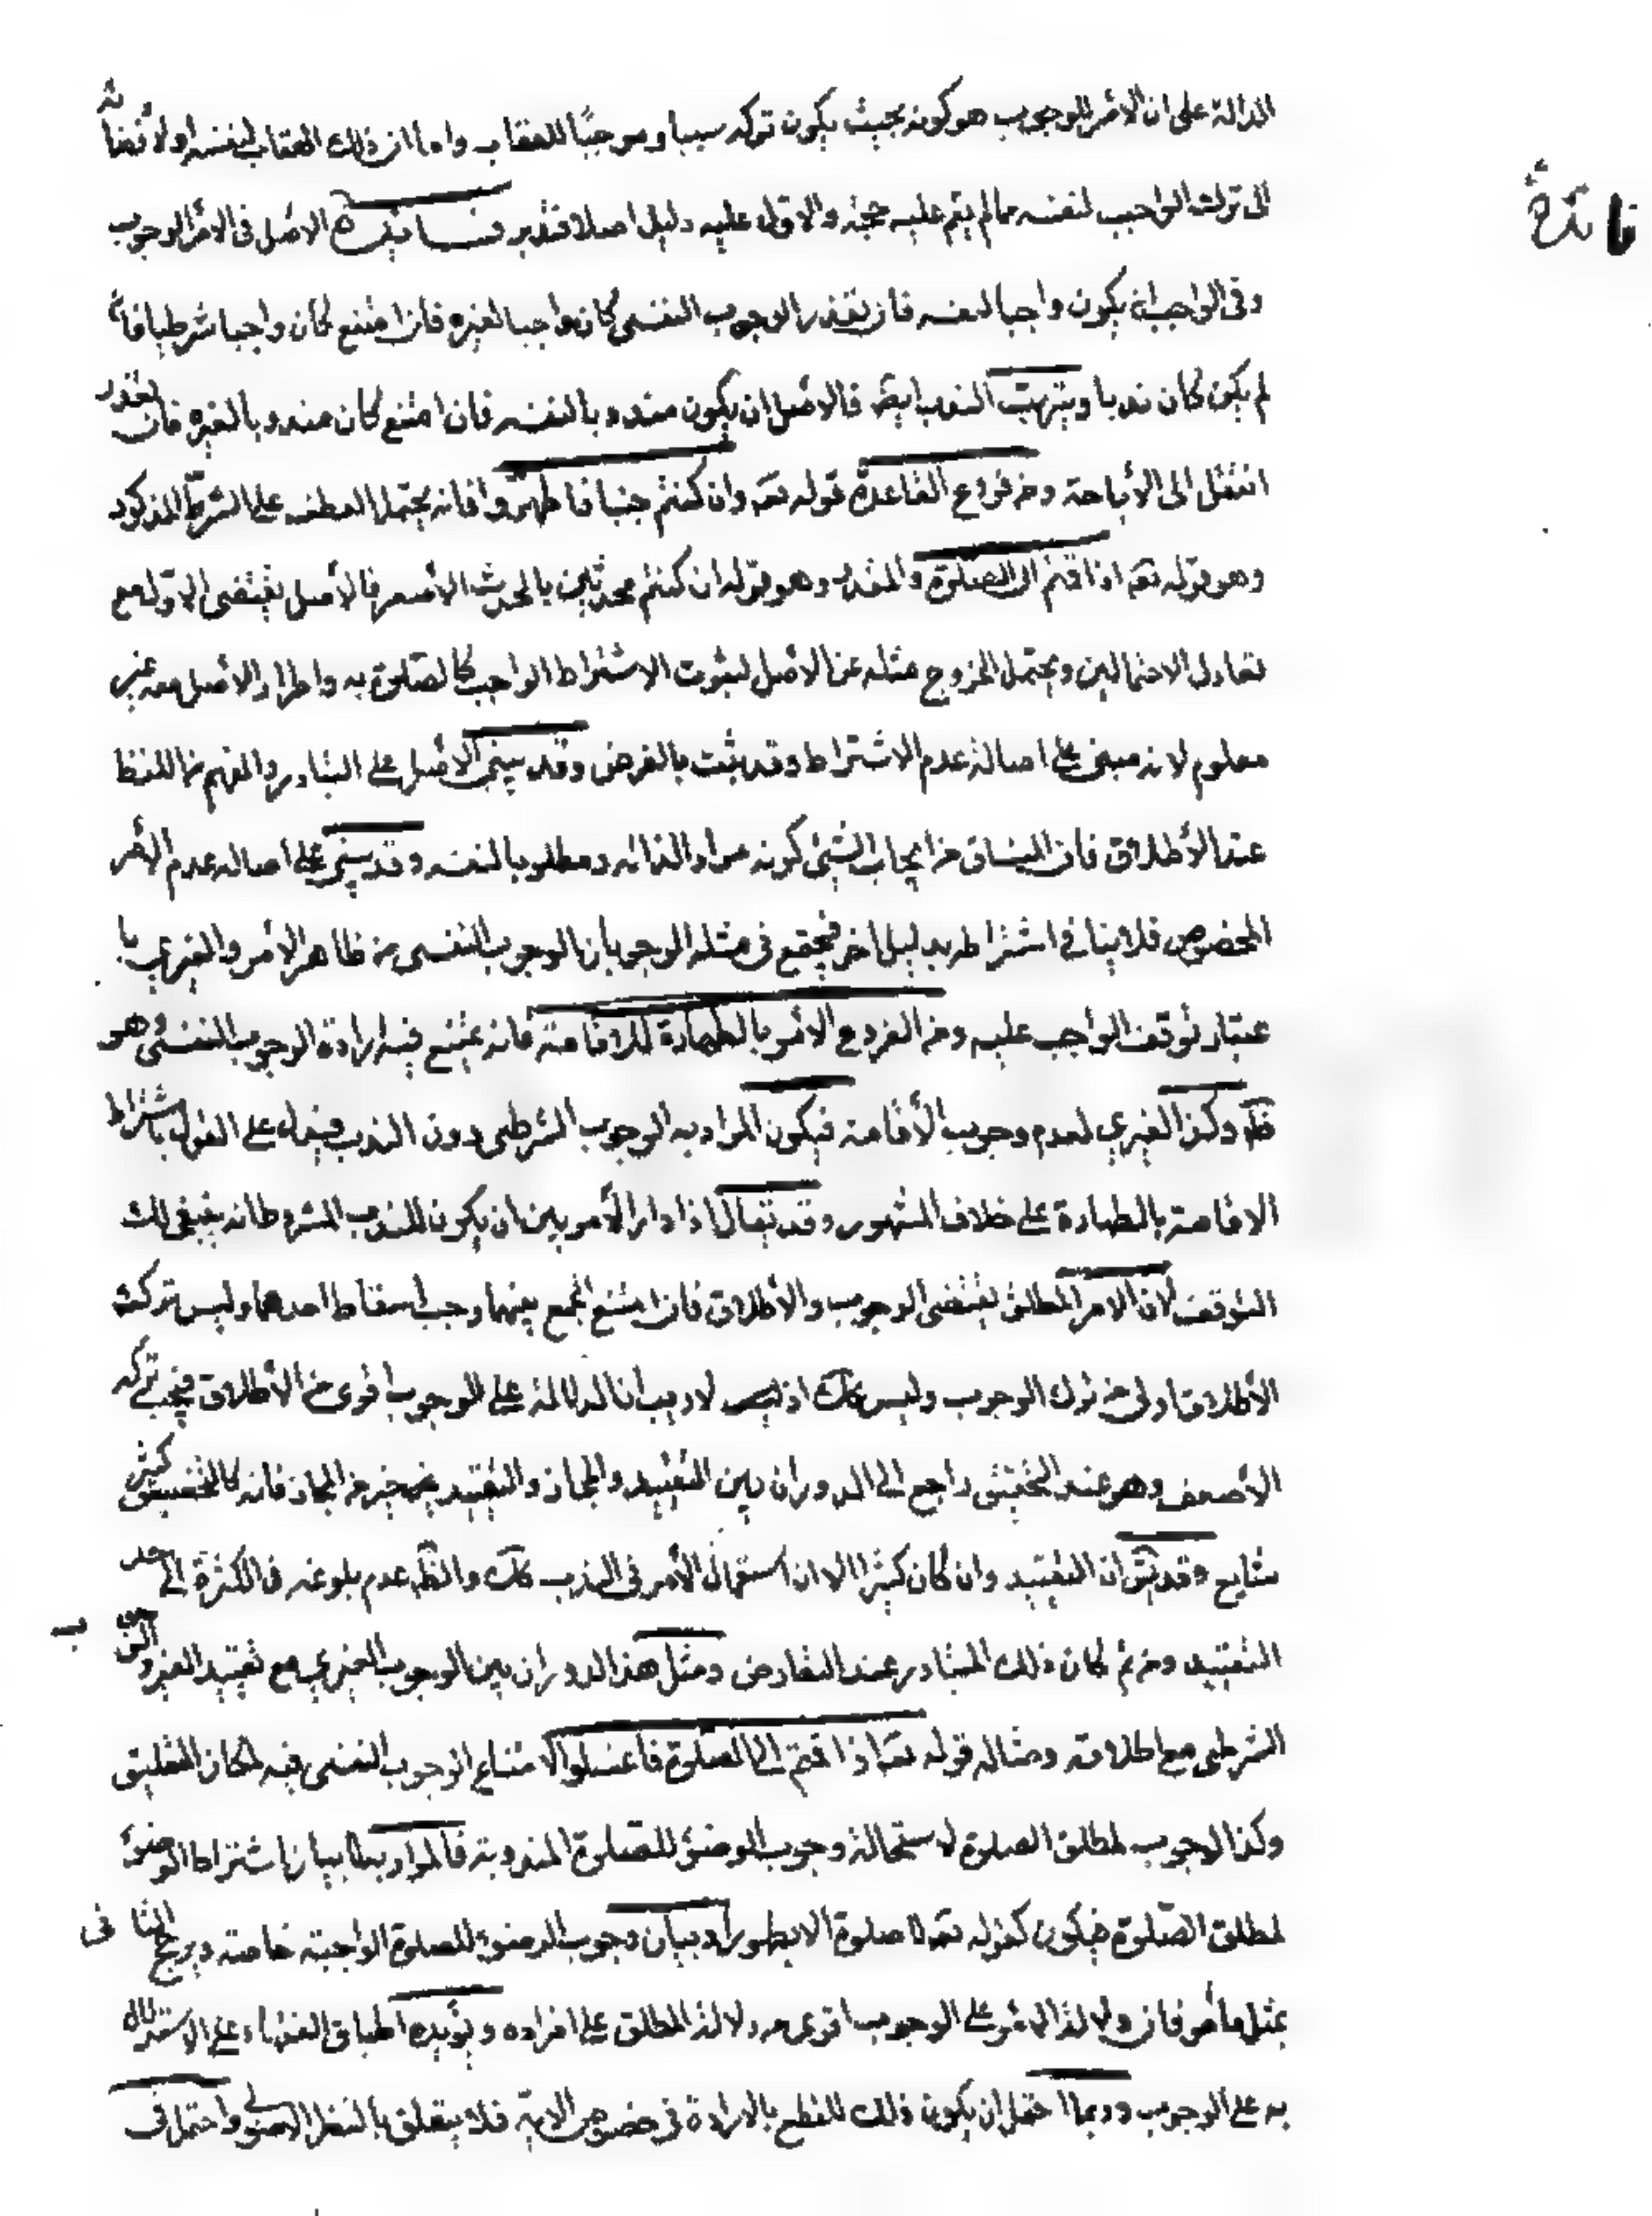 الدالة على ان الأمر للوجوب هو كونه بحيث يكون تركه سببا وموجبًا للعقاب واما ان ذلك العقاب لنفسه او لافضائه
الى ترك الواجب لنفسه مما لم يتم عليه حجة والاول عليه دليل اصلا فتدبر فــائدة الاصل فى الأمر الوجوب
وفى الواجب ان يكون واجبا لنفسه فان تعذر الوجوب النفسى كان واجبا لغيره فان امتنع كان واجبا شرطيا فان
لم يكن كان ندبا ويترتب الندب ايضا فالأصل ان يكون مندوبا لنفسه فان امتنع كان مندوبا لغيره فان تعذر
انتقل الى الأباحة ومن فروع القاعدة قوله تعه وان كنتم جنبا فاطهّروا فانه يحتمل العطف على الشرط المذكور
وهو قوله تعه اذا قمتم الى الصلوة والمقدر وهو قوله ان كنتم محدثين بالحدث الأصغر فالأصل يقتضى الاول مع
تعادل الاحتمالين ويحتمل الخروج مثله عن الأصل لثبوت الاشتراط الواجب كالصلوة به واطراد الأصل معه غير
معلوم لانه مبنى على اصالة عدم الاشتراط وقد ثبت بالفرض وقد يبنى الأصل على التبادر والفهم من اللفظ
عند الأطلاق فان المنساق من ايجاب الشيئ كونه مرادا لذاته ومطلوبا لنفسه وقد يبنى على اصالة عدم الأمر
المخصوص فلا ينافى اشتراطه بدليل اخر فيجتمع فى مثله الوجوبان الوجوب النفسى من ظاهر الأمر والغيرى با
عتبار توقف الواجب عليه ومن الفروع الأمر بالطهارة للاقامة فانه يمتنع فيه ارادة الوجوب النفسى وهو
ظه وكذا الغيرى لعدم وجوب الأقامة فيكون المراد به الوجوب الشرطى دون الندب فيدل على القول باشتراط
الاقامة بالطهارة على خلاف المشهور وقد يقال اذا دار الأمر بين ان يكون للندب المشروط انه ينبغى لك
التوقف لان الامر المطلق يقتضى الوجوب والأطلاق فان امتنع الجمع بينهما وجب اسقاط احدهما وليس ترك
الأطلاق اولى من ترك الوجوب وليس كك اذ لا ريب ان الدلالة على الوجوب اقوى من الأطلاق فيجب ترك
الأضعف وهو عند التحقيق راجع الى الدوران بين التقييد والمجاز والتقييد خير من المجاز فانه كالتخصيص كثير
شايع وقد يق ان التقييد وان كان كثيرا الا ان استعمال الأمر فى الندب كك والظه عدم بلوغه فى الكثرة الى حد
التقييد ومن ثم كان ذلك المتبادر عند التعارض ومثل هذا الدوران بين الوجوب الغيرى مع تقييد الغير والوجوب
الشرطى مع اطلاقه ومثاله قوله تعه اذا قمتم الى الصلوة فاغسلوا لامتناع الوجوب النفسى فيه لمكان التعليق
وكذا الوجوب لمطلق الصلوة لاستحالة وجوب الوضوء للصلوة المندوبة فالمراد بها بيان اشتراط الوضوء
لمطلق الصلوة فيكون كقوله تعه لا صلوة الا بطهور او بيان وجوب الوضوء للصلوة الواجبة خاصة ويرجح الثانى
بمثل ما مر فان دلالة الأمر على الوجوب اقوى من دلالة المطلق على افراده ويؤيده اطباق الفقهاء على الاستدلال
به على الوجوب وربما احتمل ان يكون ذلك للقطع بالارادة فى خصوص الاية فلا يتعلق بالنظر الاصولى واحتمل فى